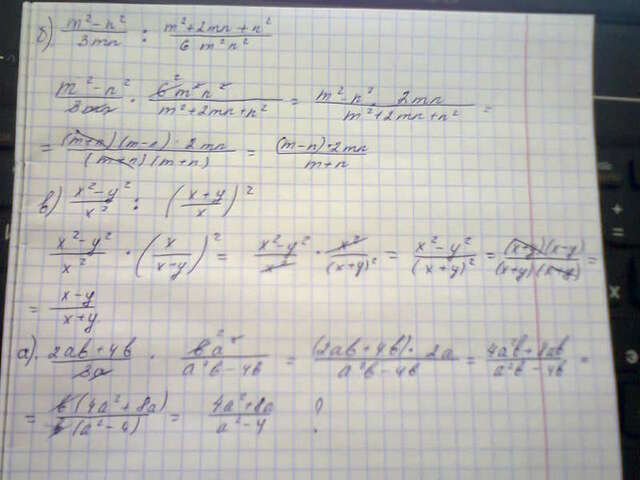 б) (m² - n²)/(3mn) : (m² + 2mn + n²)/(6 m² n²)
(m² - n²)/(3mn) · (6² m² n²)/(m² + 2mn + n²) = (m² - n² · 2mn)/(m² + 2mn + n²) =
= ((m+n)(m-n) · 2mn)/((m+n)(m+n)) = ((m-n) · 2mn)/(m+n)
в) (x² - y²)/x² : ((x+y)/x)²
(x² - y²)/x² · (x/(x-y))² = (x² - y²)/x² · x²/(x+y)² = (x² - y²)/(x+y)² = ((x+y)(x-y))/((x+y)(x+y)) =
= (x-y)/(x+y)
а). (2ab + 4b)/(3a) · (6² a²)/(a²b - 4b) = ((2ab + 4b) · 2a)/(a²b - 4b) = (4a²b + 8ab)/(a²b - 4b) =
= (b(4a² + 8a))/(b(a² - 4)) = (4a² + 8a)/(a² - 4) ?